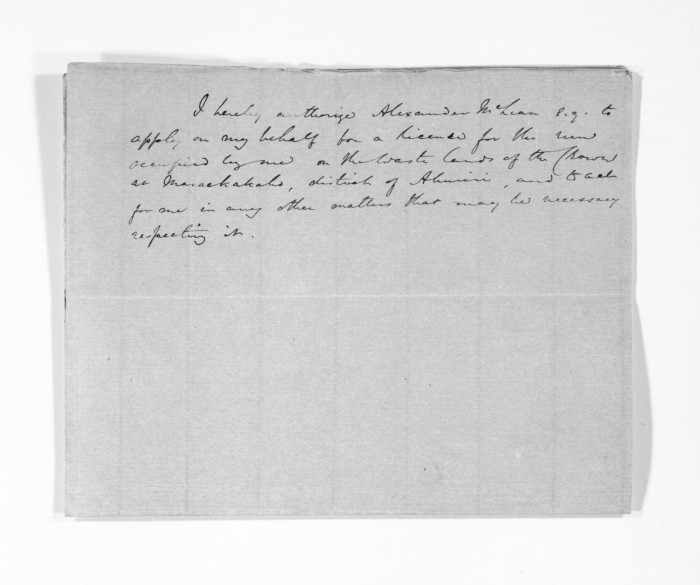 I hereby authorize Alexander McLean Esq. to
apply on my behalf for a license for the run
occupied by me on the Waste lands of the Crown
at Maraekakaho, district of Ahuriri, and to act
for me in any other matters that may be necessary
respecting it.